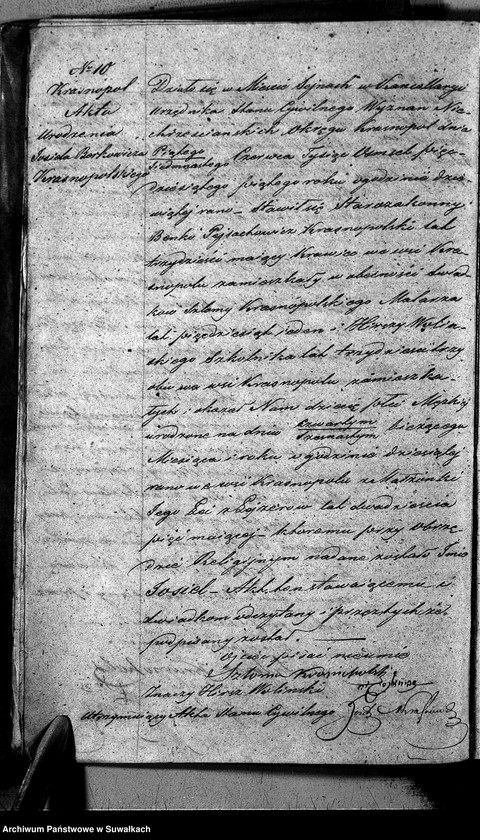 No 10
Krasnopol
Akta
Urodzenia
Josiela Berkowicza
Krasnopolskiego
Działo się w Mieście Sejnach w Kancellaryi
Urzędnika Stanu Cywilnego Wyznań Nie
chrześciańskich Okręgu Krasnopol dnia
Piątego
Siedemnastego Czerwca Tysiąc Ośmset pięć
dziesiątego piątego roku o godzinie dzie
wiątej rano – Stawił się Starozakonny
Benko Pejsachowicz Krasnopolski lat
trzydzieści mający Krawiec we wsi Kra-
snopolu zamieszkały w obecności świad
ków Szlomy Krasnopolskiego Malarza
lat pięćdziesiąt jeden i Hirszy Woliń
skiego Szkolnika lat trzydzieści trzy
obu we wsi Krasnopolu zamieszka-
łych i okazał Nam dziecię płci Męzkiej
urodzone na dniu czwartym
trzynastym bieżącego
Miesiąca i roku o godzinie dziewiątej
rano we wsi Krasnopolu z Małżonki
Jego lat dwadzieścia
pięć mającej – któremu przy obrzę-
dzie Religijnym nadane zostało Imie
Josiel – Akt ten stawającemu i
świadkom odczytany i przez tychże
podpisany został.
Ojciec pisać nieumie
Szloma Krasnopolski
Znaczy Hirsz Woliński
Utrzymujący Akta Stanu Cywilnego
Archiwum Państwowe w Suwałkach